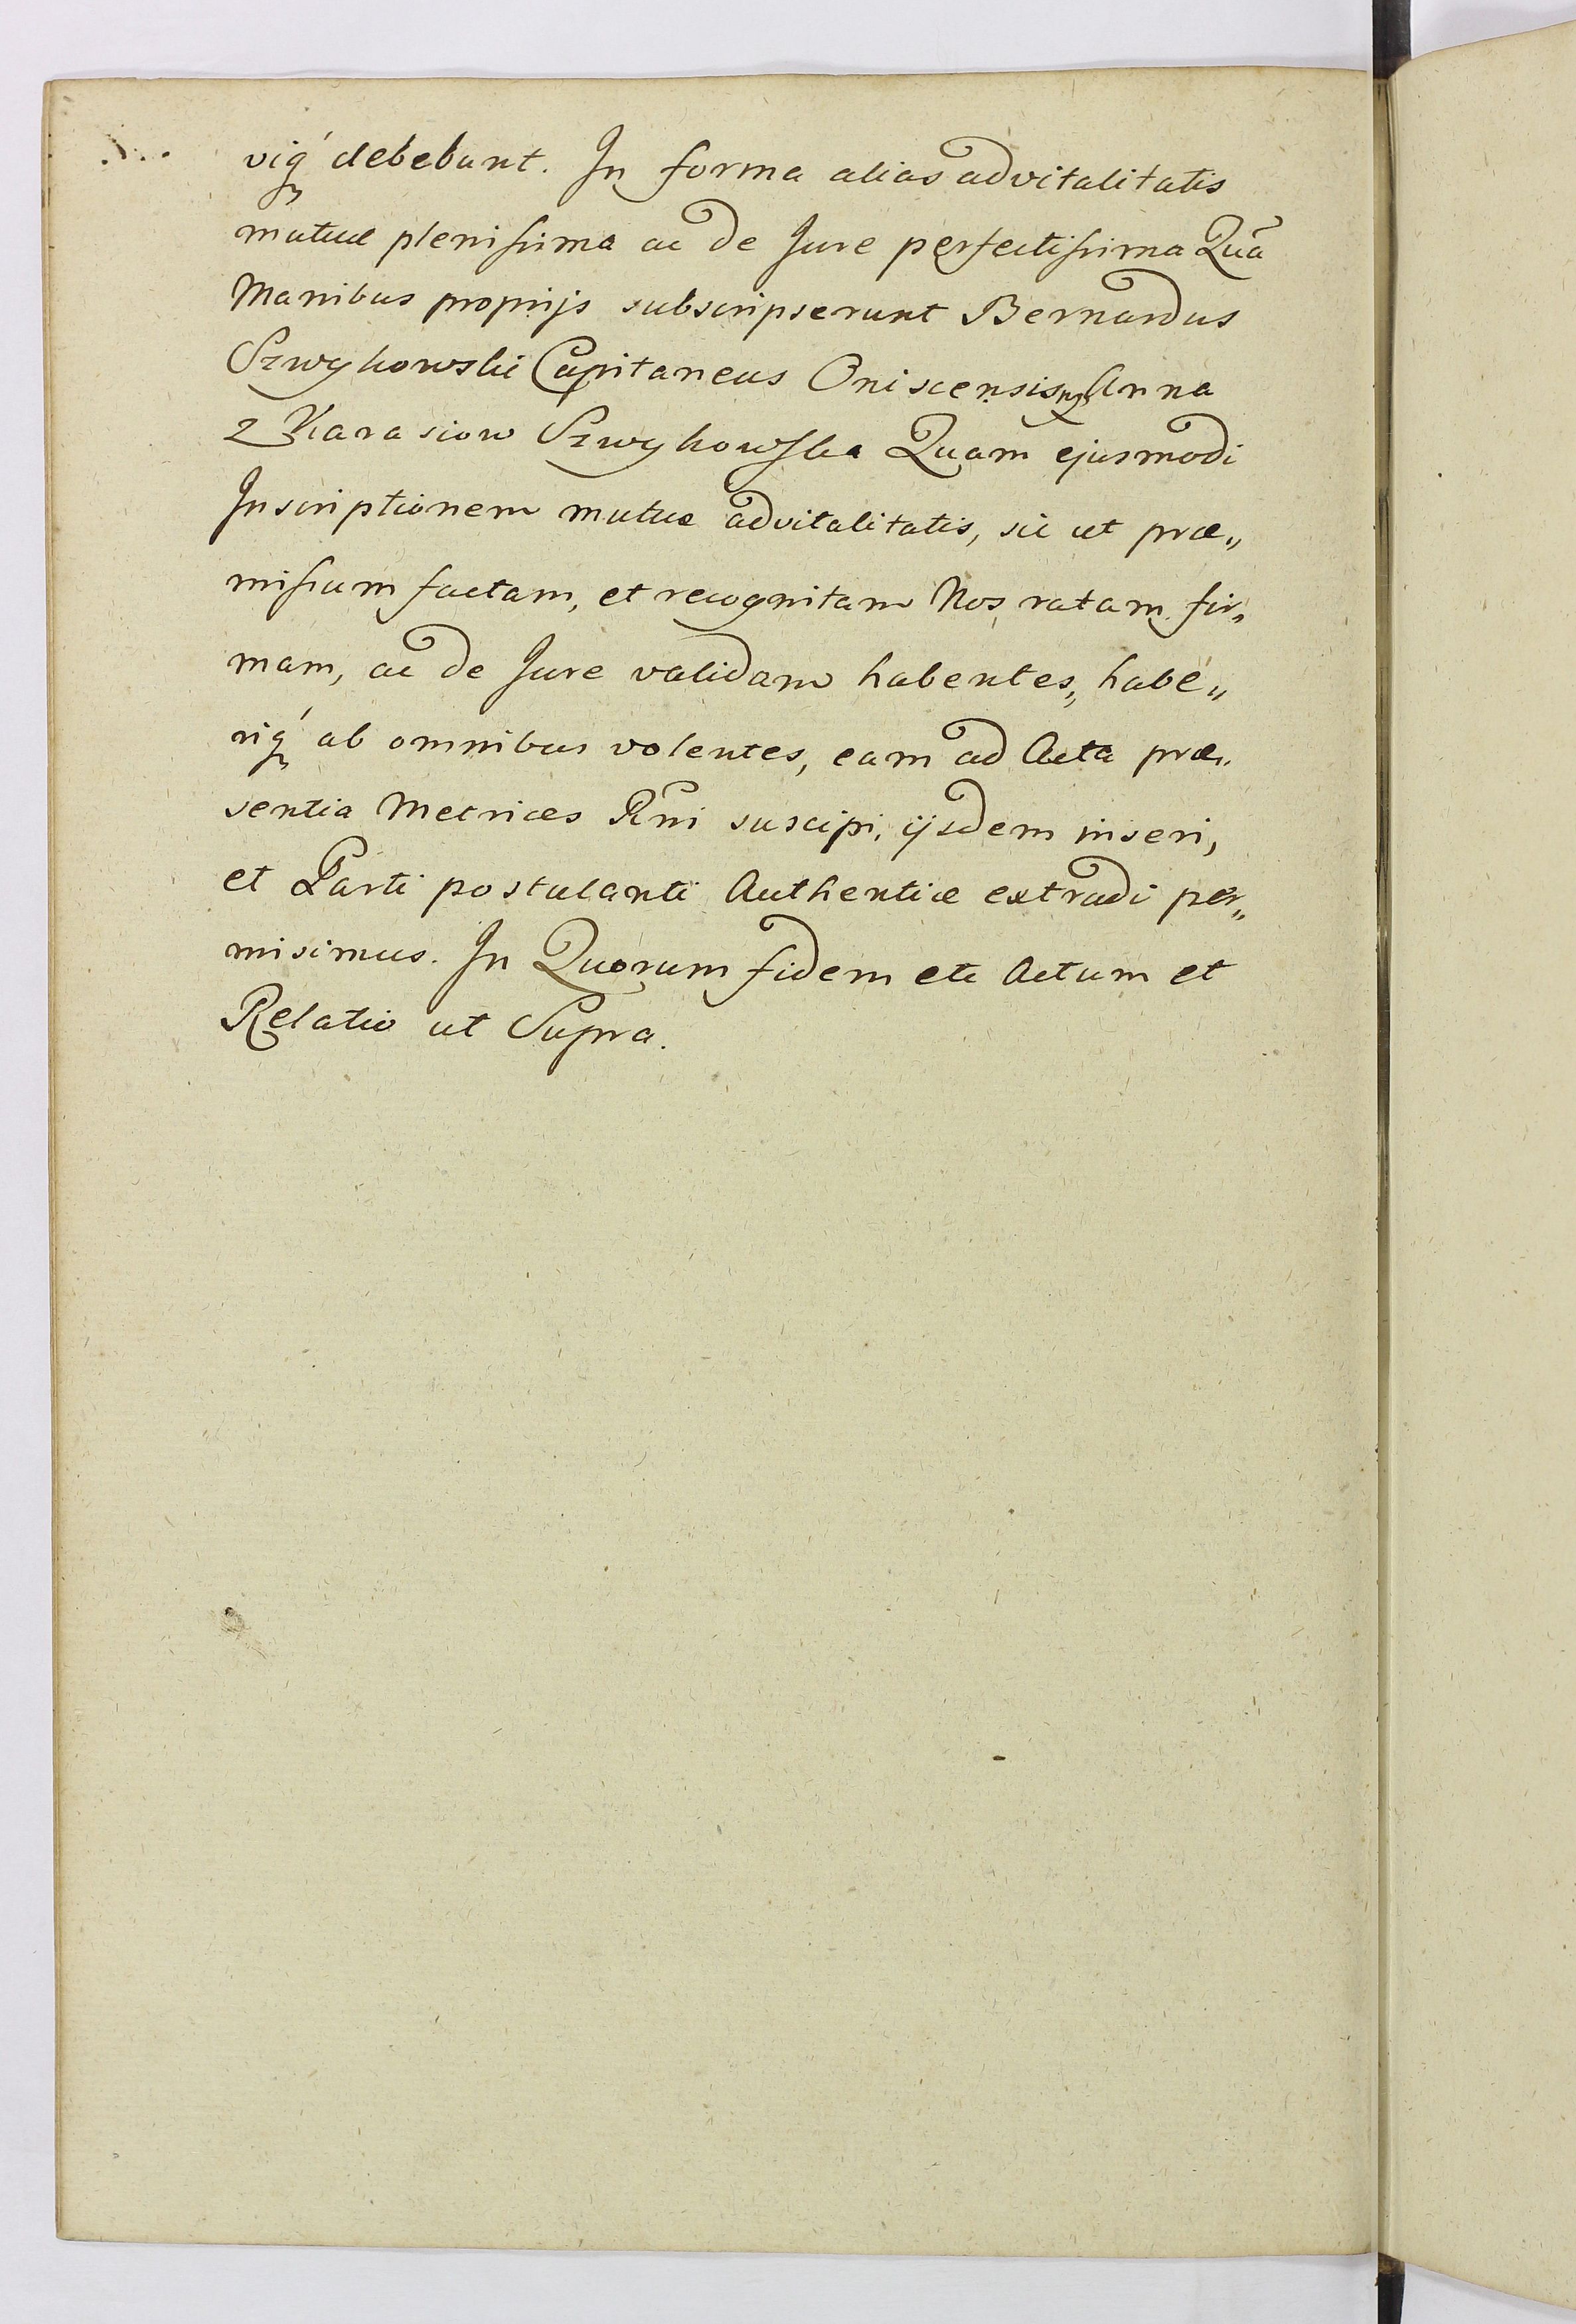 viq́ debebunt. In forma alias advitalitatis
mutuæ plenissima ac de Jure perfectissima Quã
Manibus proprijs subscripserunt Bernardus
Szwykowski Capitaneus Oniscensis Anna
z Karasiow Szwykowska Quam ejusmodi
Inscriptionem mutuæ advitalitatis, sic ut præ„
missum factam, et recognitam Nos ratam fir„
mam, ac de Jure validam habentes, habe„
riq́ ab omnibus volentes, eam ad Acta præ„
sentia Metrices Rñi suscipi, ijsdem inseri,
et Parti postulanti Authentice extradi per„
misimus. In Quorum fidem etc Actum et
Relatio ut Supra.